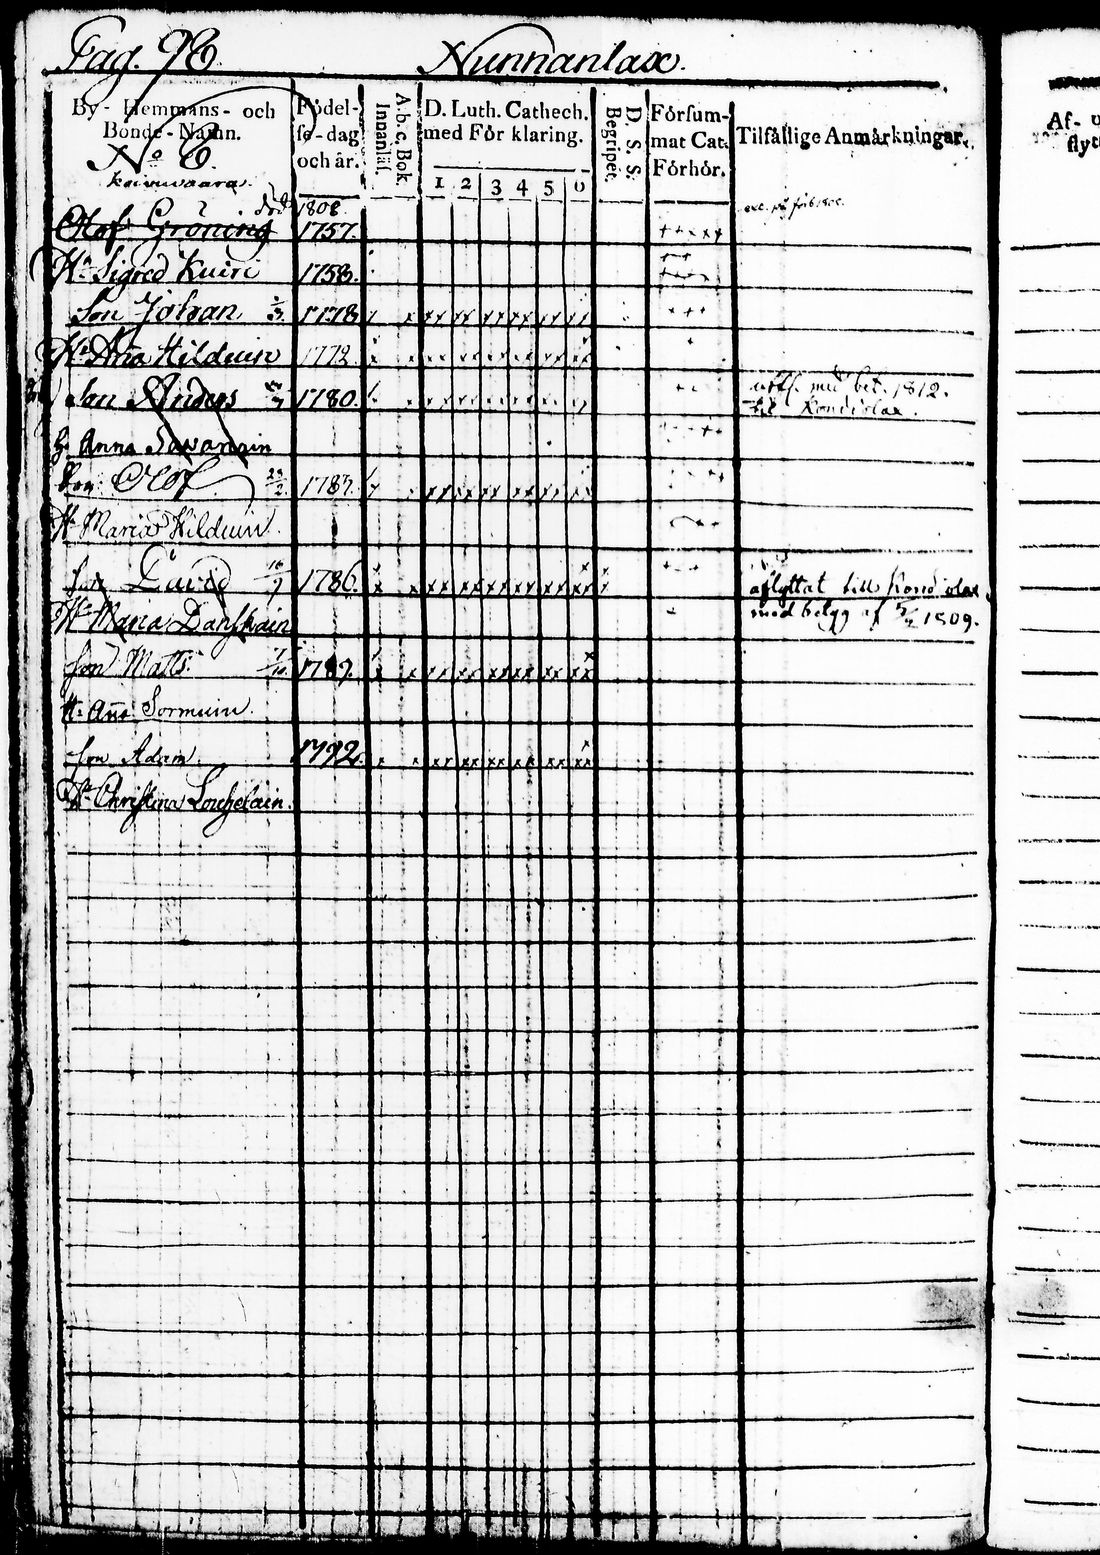 Pag. 96 Nunnanlax.
By- Hemmans- och Bonde-Namn.
Födelse-dag och år.
A. b. c. Bok. Innanläs.
D. Luth. Cathech. med För klaring.
1 2 3 4 5 6
D. S. S. Begripet.
Försummat Cat. Förhör.
Tilfällige Anmärkningar.
No 6.
Koivuvaara.
död 1808
Olof Gröning 1757.
H. Sigred Kuire 1758.
Son Johan 1778
H. Anna Hilduin 1772.
Son Anders 1780. utfl. med bet. 1812.
till Kondiolax.
H. Anna Savanain
Son Olof 23/2 1783.
H. Maria Hilduin
Son David 16/9 1786. aflyttat till Kondiolax
H. Maria Danskain med betyg af 1809.
Son Matts 1789.
H. Anna Sormuin.
Son Adam 1792.
H. Christina
Af- u
flytt